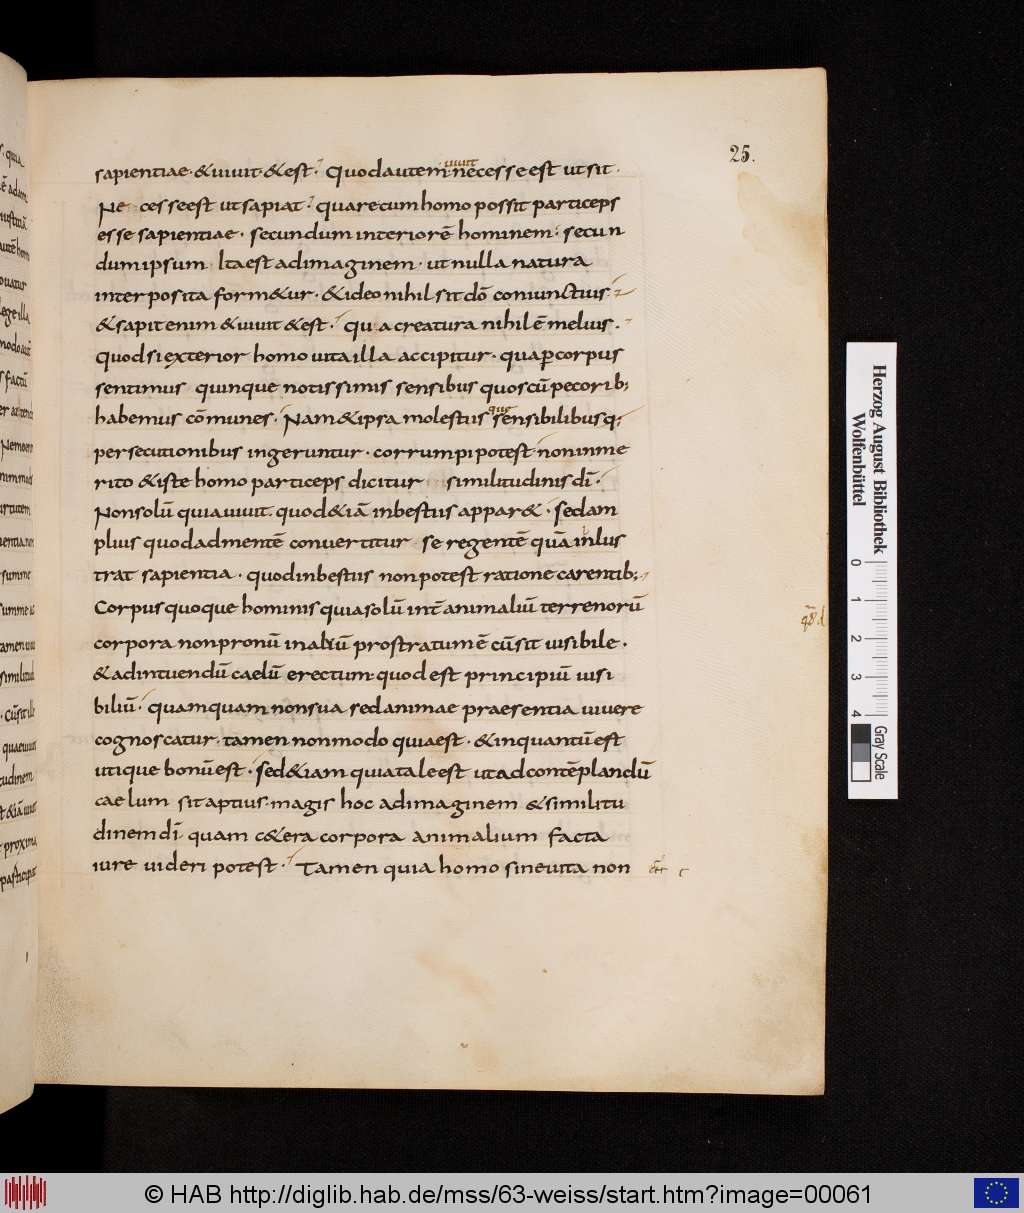 25.
sapientiae · & uiuit · & est · Quod autem uiuit necesse est ut sit ·
Ne cesse est ut sapiat · quare cum homo possit particeps
esse sapientiae · secundum interiorē hominem · secun
dum ipsum Ita est ad imaginem · ut nulla natura
interposita form&ur · & ideo nihil sit dō coniunctius ·
& sapit enim & uiuit & est · qua creatura nihil ē melius ·
quod si exterior homo uita illa accipitur · qua ꝑ corpus
sentimus quinque notissimis sensibus quos cū pecorib;
habemus cōmunes · Nam & ipsa molestiis quę sensibilibus q;
persecutionibus ingeruntur · corrumpi potest non inme
rito & iste homo particeps dicitur similitudinis dī ·
Non solū quia uiuit · quod &iā in bestiis appar& · sed am
plius quod ad mentē conuertitur se regentē quā inlus
trat sapientia · quod in bestiis non potest ratione carentib;
Corpus quoque hominis quia solū int̄ animaliū terrenorū
corpora non pronū in aluū prostratum ē cū sit uisibile ·
& ad intuendū caelū erectum quod est principiū uisi
biliū · quamquam non sua sed animae praesentia uiuere
cognoscatur · tamen non modo quia est · & inquantū est
utique bonū est · sed &iam quia tale est ut ad contēplandū
caelum sit aptius · magis hoc ad imaginem & similitu
dinem dī quam c&era corpora animalium facta
iure uideri potest · Tamen quia homo sine uita non
Herzog August Bibliothek
Wolfenbüttel
0 1 2 3 4
Gray Scale
© HAB http://diglib.hab.de/mss/63-weiss/start.htm?image=00061